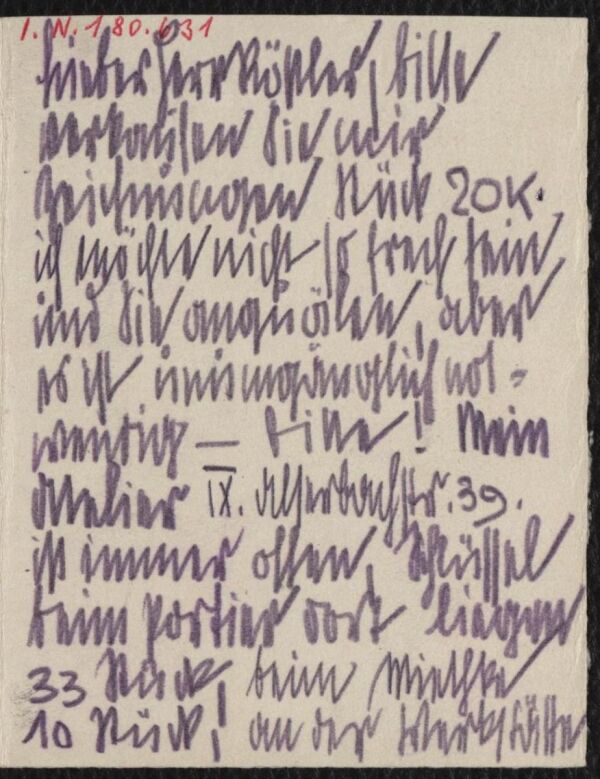 I.N.180.631
Lieber Herr Rößler, bitte
verkaufen Sie mir
Zeichnungen Stück 20K.
ich möchte nicht so frech sein
und Sie anquälen, aber
es ist unumgänglich not-
wendig — bitte! Mein
Atelier IX. Alserbachstr. 39.
ist immer offen, Schlüssel
beim Portier dort liegen
33 Stück, beim Miethke
10 Stück, an der Werkstätte